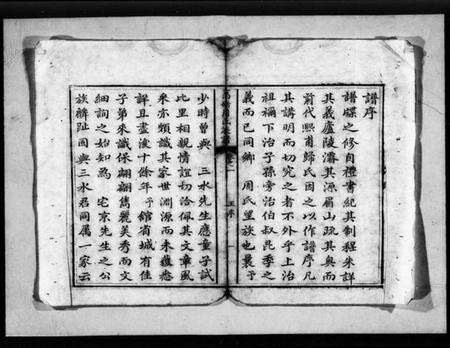 譜序
譜牒之修自禮書紀其制程朱詳
其義廬陵濬其源眉山疏其與而
前代熙甫歸氏因之以作譜序凡
其講明而切究之者不外乎上治
祖禰下治子孫旁治伯叔昆季之
義而已同鄉 周氏望族也曩予
少時曾與 三水先生應童子試
比里相親情誼初洽佩其文章風
采亦頗識其家世淵源而未獲悉
詳且盡後十餘年予館省城有佳
子弟來識傺翩翩雋麗美秀而文
細詢之始知為 宅京先生之公
族麟趾固與三水君同屬一家云